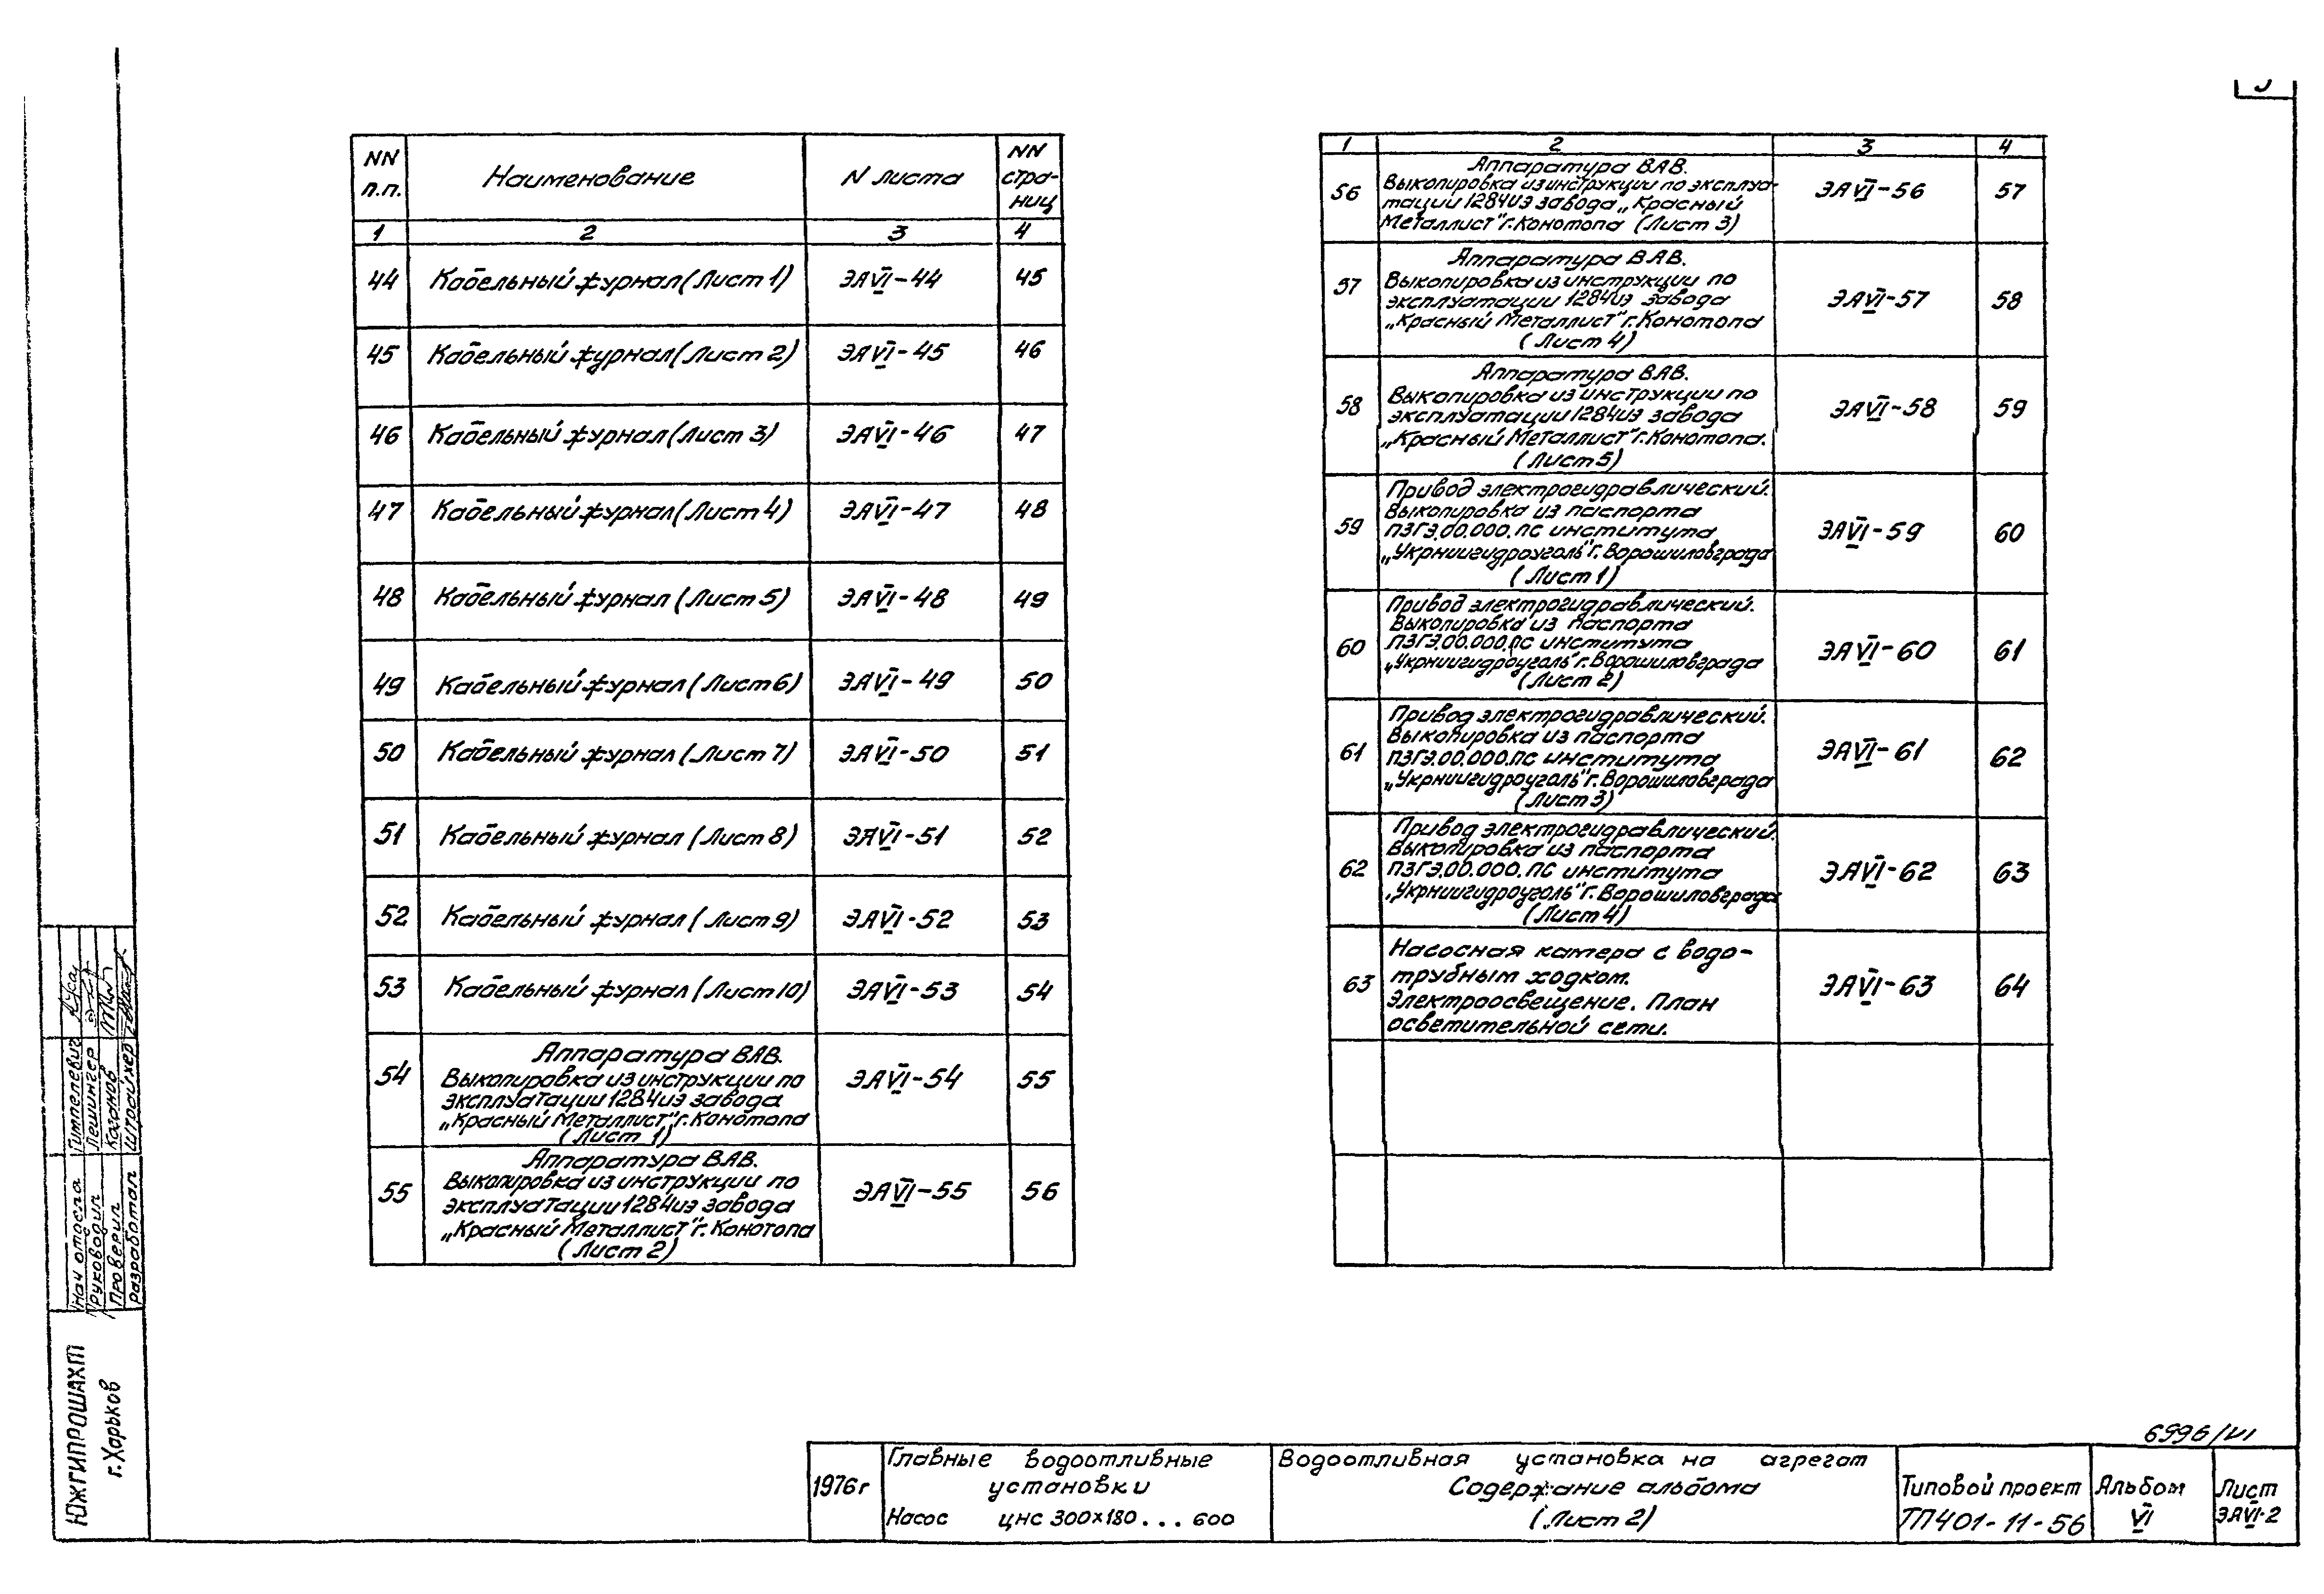 NN п.п. Наименование N листа NN стра-ниц
1 2 3 4
44 Кабельный журнал (Лист 1) ЭАVI-44 45
45 Кабельный журнал (Лист 2) ЭАVI-45 46
46 Кабельный журнал (Лист 3) ЭАVI-46 47
47 Кабельный журнал (Лист 4) ЭАVI-47 48
48 Кабельный журнал (Лист 5) ЭАVI-48 49
49 Кабельный журнал (Лист 6) ЭАVI-49 50
50 Кабельный журнал (Лист 7) ЭАVI-50 51
51 Кабельный журнал (Лист 8) ЭАVI-51 52
52 Кабельный журнал (Лист 9) ЭАVI-52 53
53 Кабельный журнал (Лист 10) ЭАVI-53 54
Аппаратура ВАВ.
54 Выкопировка из инструкции по ЭАVI-54 55
эксплуатации 1284из завода
„Красный Металлист" г. Конотопа
(Лист 1)
Аппаратура ВАВ.
55 Выкопировка из инструкции по ЭАVI-55 56
эксплуатации 1284из завода
„Красный Металлист" г. Конотопа
(Лист 2)
1 2 3 4
Аппаратура ВАВ.
56 Выкопировка из инструкции по эксплуа- ЭАVI-56 57
тации 1284из завода „Красный
Металлист" г. Конотопа (Лист 3)
Аппаратура ВАВ.
57 Выкопировка из инструкции по ЭАVI-57 58
эксплуатации 1284из завода
„Красный Металлист" г. Конотопа
(Лист 4)
Аппаратура ВАВ.
58 Выкопировка из инструкции по ЭАVI-58 59
эксплуатации 1284из завода
„Красный Металлист" г. Конотопа.
(Лист 5)
Привод электрогидравлический.
59 Выкопировка из паспорта ЭАVI-59 60
ПЗГЭ.00.000.ПС института
„Укрниигидроуголь" г. Ворошиловграда
(Лист 1)
Привод электрогидравлический.
60 Выкопировка из паспорта ЭАVI-60 61
ПЗГЭ.00.000.ПС института
„Укрниигидроуголь" г. Ворошиловграда
(Лист 2)
Привод электрогидравлический.
61 Выкопировка из паспорта ЭАVI-61 62
ПЗГЭ.00.000.ПС института
„Укрниигидроуголь" г. Ворошиловграда
(Лист 3)
Привод электрогидравлический.
62 Выкопировка из паспорта ЭАVI-62 63
ПЗГЭ.00.000.ПС института
„Укрниигидроуголь" г. Ворошиловграда
(Лист 4)
Насосная камера с водо-
63 трубным ходком. ЭАVI-63 64
Электроосвещение. План
осветительной сети.
Нач отдела Гимпелевич
Руководил Лешингер
Проверил Каганов
Разработал Штрайхер
ЮЖГИПРОШАХТ
г. Харьков
6996/VI
1976г
Главные водоотливные
установки
Насос ЦНС 300х180...600
Водоотливная установка на агрегат
Содержание альбома
(Лист 2)
Типовой проект
ТП401-11-56
Альбом
VI
Лист
ЭАVI-2